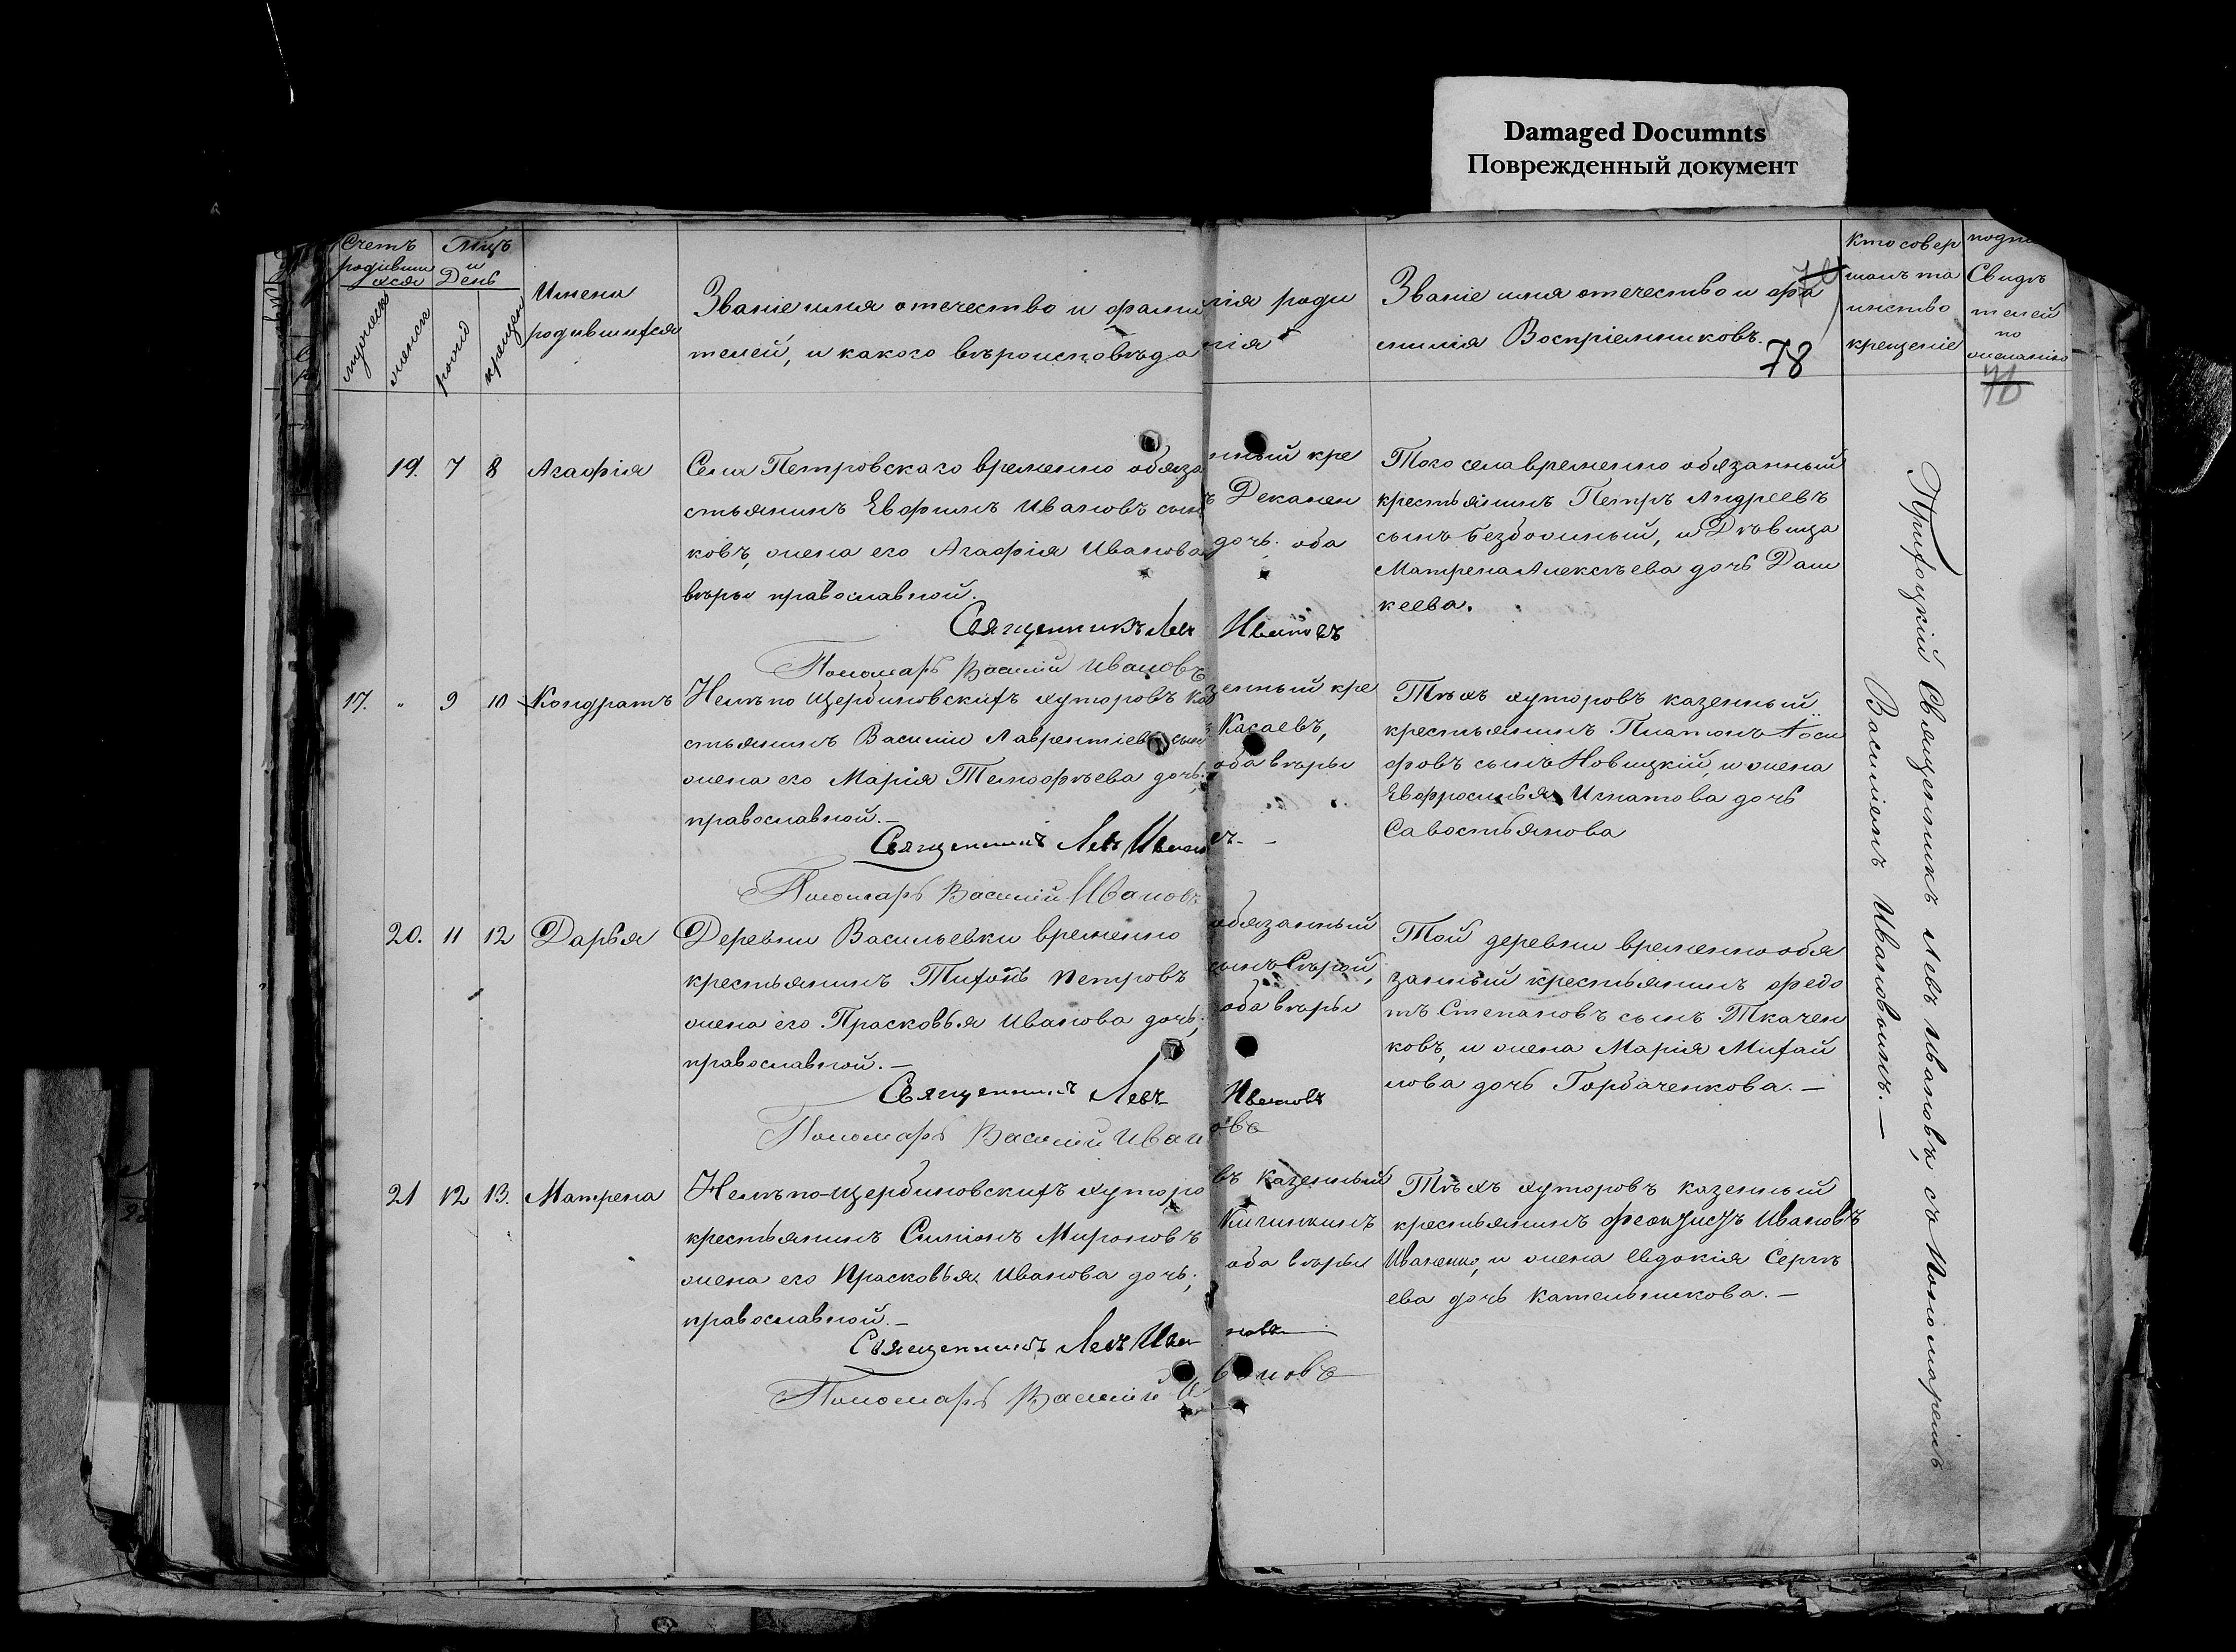 Damaged Documnts
Поврежденный документ
Счетъ родившихся
Мѣсяцъ и День
Имена родившихся
Званіе имя отечество и фамилія роди
телей, и какого вѣроисповѣданія
Званіе имя отечество и фа
милія Воспріемниковъ.
Кто совер
шалъ та
инство
крещеніе
Свидѣ
телей
по
желанію
мужеск
женск
рожд
крещен
78
19. 7 8 Агафія
Села Петровскаго временно обязанный кре
стьянинъ Евфимъ Ивановъ сынъ Деканен
ковъ, жена его Агафія Иванова дочь. оба
вѣры православной.
Священникъ Левъ Ивановъ
Пономарь Василій Ивановъ
Того села временно обязанный
крестьянинъ Петръ Андреевъ
сынъ Безбожный, и Дѣвица
Матрена Алексѣева дочь Даш
кеева.
17. " 9 10 Кондратъ
Немѣпо Щербиновскихъ хуторовъ казенный кре
стьянинъ Василій Лаврентіевъ сынъ Касаевъ,
жена его Марія Тимофѣева дочь; оба вѣры
православной.—
Священникъ Левъ Ивановъ.-
Пономарь Василій Ивановъ
Тѣхъ хуторовъ казенный
крестьянинъ Платонъ Іоси
фовъ сынъ Новицкій, и жена
Евфросинья Игнатова дочь
Савостьянова
20. 11 12 Дарья
Деревни Васильевки временно обязанный
крестьянинъ Тихонъ Петровъ сынъ Сѣрый,
жена его Прасковья Иванова дочь; оба вѣры
православной.—
Священникъ Левъ Ивановъ
Пономарь Василій Ивановъ
Той деревни временно обя
занный крестьянинъ Федо
тъ Степановъ сынъ Ткачен
ковъ, и жена Марія Михай
лова дочь Горбаченкова.—
21 12 13. Матрена
Немѣпо-Щербиновскихъ хуторовъ казенный
крестьянинъ Симіонъ Мироновъ Кигинкинъ
жена его Прасковья Иванова дочь; оба вѣры
православной.—
Священникъ Левъ Ивановъ
Пономарь Василій Ивановъ
Тѣхъ хуторовъ казенный
крестьянинъ Феоктистъ Ивановъ
Иваненко, и жена Евдокія Сергѣ
ева дочь Кательникова.—
Приходскій Священникъ Левъ Ивановъ, съ Пономаремъ
Василіемъ Ивановымъ.—